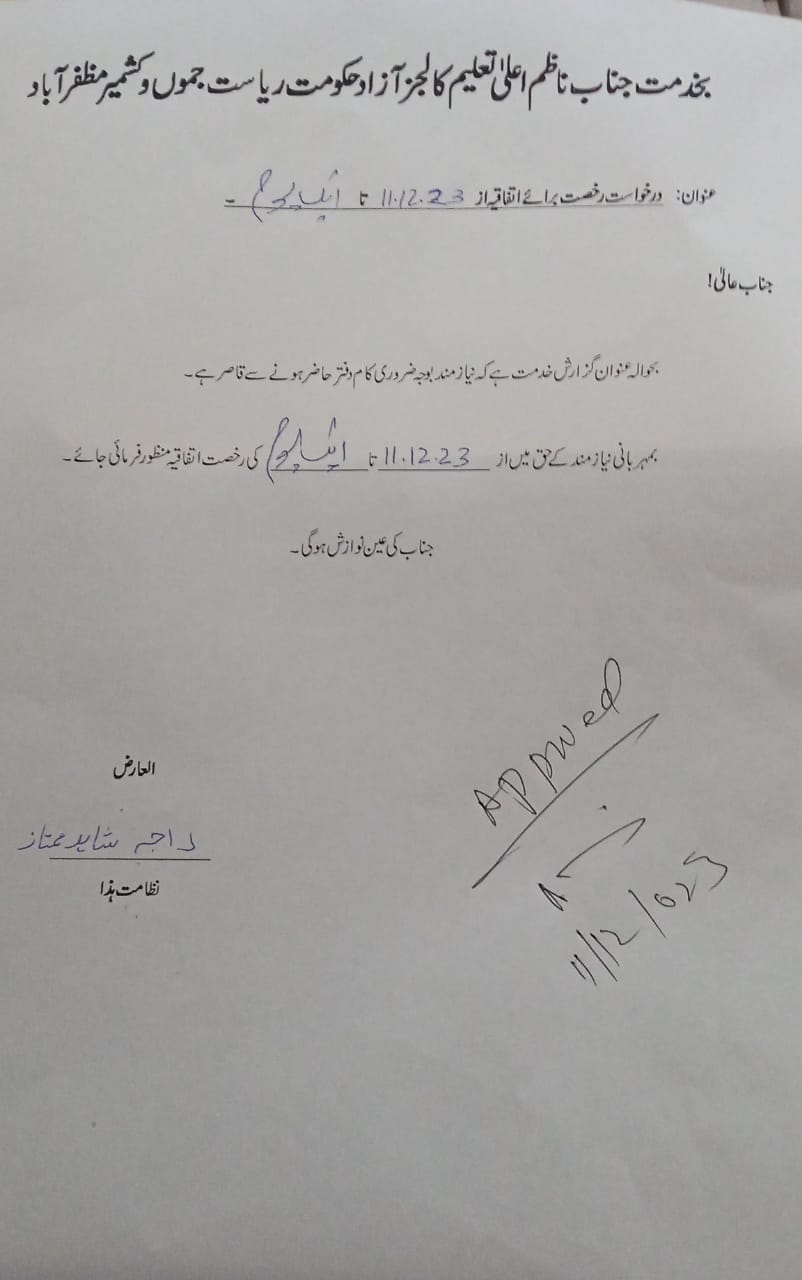 بخدمت جناب ناظم اعلیٰ تعلیم کالجز آزاد حکومت ریاست جموں و کشمیر مظفر آباد
عنوان: درخواست رخصت برائے اتفاقیہ از 11.12.23 تا ایک یوم ۔
جناب عالیٰ!
بحوالہ عنوان گزارش خدمت ہے کہ نیاز مند بوجہ ضروری کام دفتر حاضر ہونے سے قاصر ہے۔
بمہربانی نیاز مند کے حق میں از 11.12.23 تا ایک یوم کی رخصت اتفاقیہ منظور فرمائی جائے۔
جناب کی عین نوازش ہوگی۔
Approved
11/12/023
العارض
راجہ شاہد ممتاز
نظامت ہذا